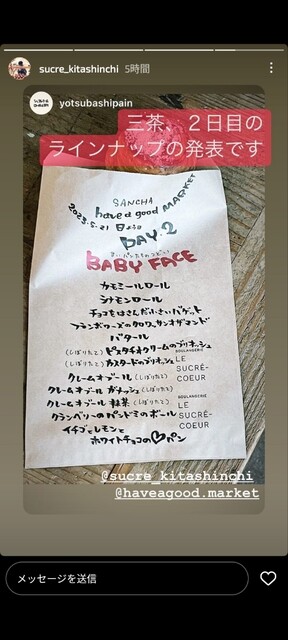 sucre_kitashinchi 5時間
yotsubashipain
三茶、２日目の
ラインナップの発表です
SANCHA
have a good MARKET
2023.5.21 日よう日
DAY.2
BABY FACE
カモミールロール
シナモンロール
チョコもはさんだいさいバゲット
フランボワーズのクロワッサンオザマンド
バタール
(しぼりたて) ピスタチオクリームのブリオッシュ
(しぼりたて) カスタードのブリオッシュ
クレームオブール (しぼりたて)
クレームオブール ガナッシュ (しぼりたて)
クレームオブール 抹茶 (しぼりたて)
クランベリーのパンドミのボール
イチゴとレモンと
ホワイトチョコの♡パン
BOULANGERIE
LE
SUCRÉ-
COEUR
BOULANGERIE
LE
SUCRÉ-
COEUR
@sucre_kitashinchi
@haveagood.market
メッセージを送信